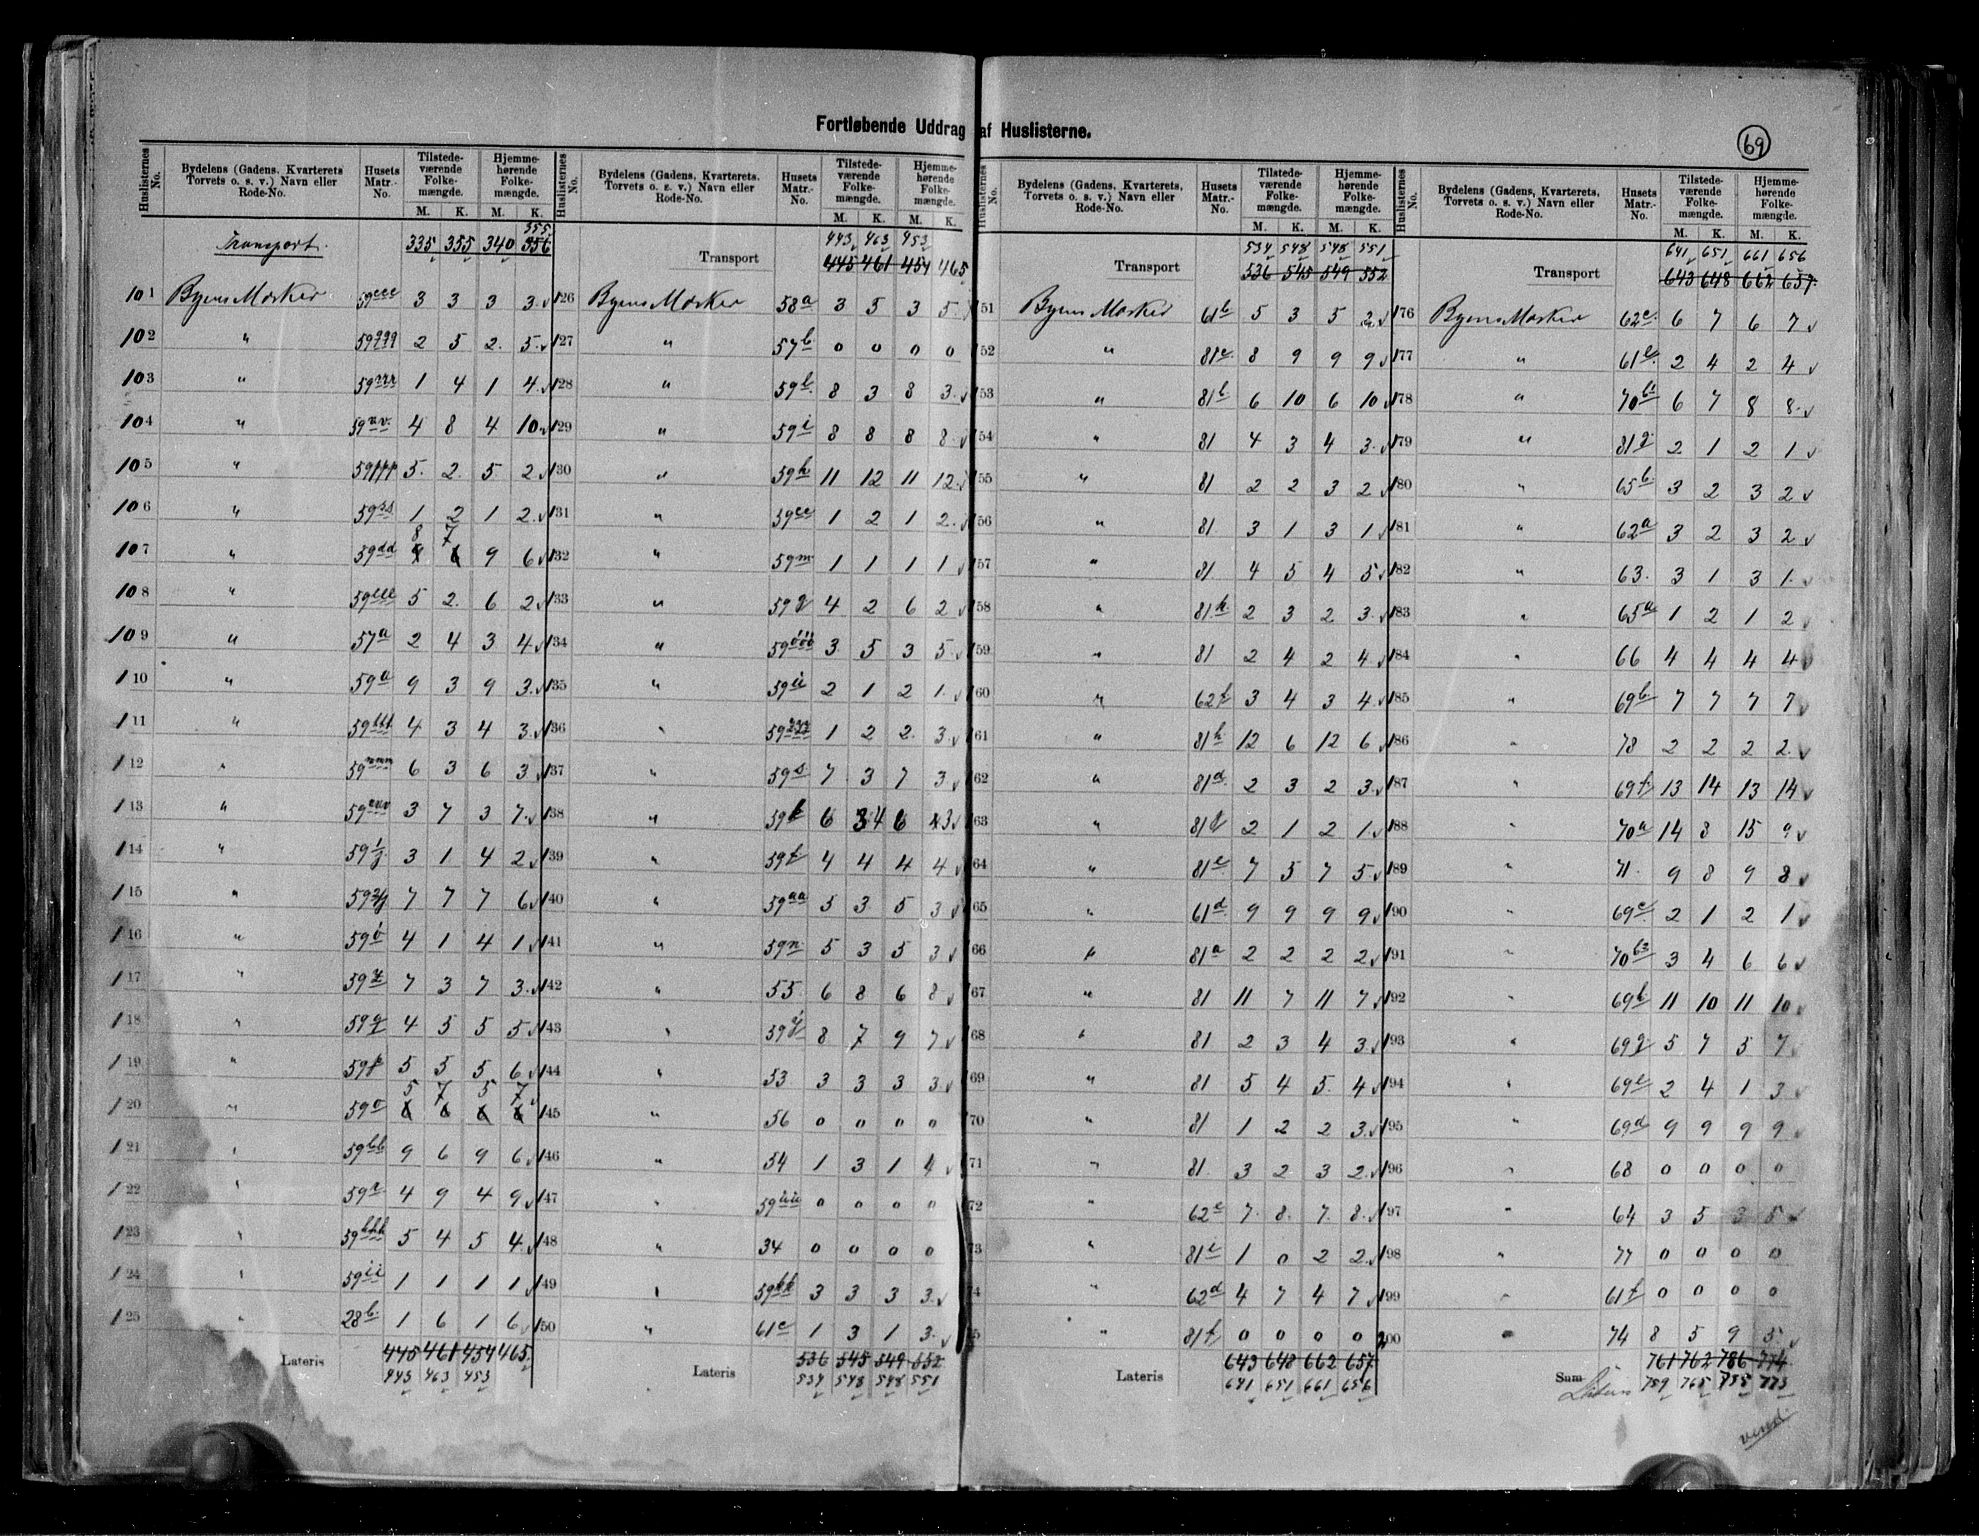 Fortløbende Uddrag af Huslisterne.
69
Huslisternes No. Bydelens (Gadens, Kvarterets Torvets o. s. v.) Navn eller Rode-No. Husets Matr.-No. Tilstedeværende Folkemængde. M. K. Hjemmehørende Folkemængde. M. K.
355
Transport. 335 355 340 356
101 Byens Marker 59eee 3 3 3 3
102 " 59qqq 2 5 2 5
103 " 59rrr 1 4 1 4
104 " 59uv 4 8 4 10
105 " 59ppp 5 2 5 2
106 " 59ss 1 2 1 2
8 7
107 " 59dd 9 6 9 6
108 " 59eee 5 2 6 2
109 " 57a 2 4 3 4
110 " 59a 9 3 9 3
111 " 59ttt 4 3 4 3
112 " 59nnn 6 3 6 3
113 " 59 3 7 3 7
114 " 59 3 1 4 2
115 " 59 7 7 7 6
116 " 59ö 4 1 4 1
117 " 59 7 3 7 3
118 " 59q 4 5 5 5
119 " 59p 5 5 5 6
5 7 5 7
120 " 59o 6 6 6 6
121 " 59bb 9 6 9 6
122 " 59r 4 9 4 9
123 " 59kkk 5 4 5 4
124 " 59ii 1 1 1 1
125 " 28b 1 6 1 6
Lateris 445 461 454 465
443 463 453
Huslisternes No. Bydelens (Gadens, Kvarterets, Torvets o. s. v.) Navn eller Rode-No. Husets Matr.-No. Tilstedeværende Folkemængde. M. K. Hjemmehørende Folkemængde. M. K.
443 463 453
Transport 445 461 454 465
126 Byens Marker 58a 3 5 3 5
127 " 57b 0 0 0 0
128 " 59b 8 3 8 3
129 " 59i 8 8 8 8
130 " 59h 11 12 11 12
131 " 59ee 1 2 1 2
132 " 59m 1 1 1 1
133 " 59g 4 2 6 2
134 " 59ööö 3 5 3 5
135 " 59ii 2 1 2 1
136 " 59 1 2 2 3
137 " 59s 7 3 7 3
138 " 59k 6 3 4 6 4 3
139 " 59t 4 4 4 4
140 " 59aa 5 3 5 3
141 " 59n 5 3 5 3
142 " 55 6 8 6 8
143 " 59 8 7 9 7
144 " 53 3 3 3 3
145 " 56 0 0 0 0
146 " 54 1 3 1 4
147 " 59üü 0 0 0 0
148 " 34 0 0 0 0
149 " 59kk 3 3 3 3
150 " 61e 1 3 1 3
Lateris 536 545 549 552
534 548 548 551
Huslisternes No. Bydelens (Gadens, Kvarterets, Torvets o. s. v.) Navn eller Rode-No. Husets Matr.-No. Tilstedeværende Folkemængde. M. K. Hjemmehørende Folkemængde. M. K.
534 548 548 551
Transport 536 545 549 552
51 Byens Marker 61b 5 3 5 2
52 " 81c 8 9 9 9
53 " 81b 6 10 6 10
54 " 81 4 3 4 3
55 " 81 2 2 3 2
56 " 81 3 1 3 1
57 " 81 4 5 4 5
58 " 81k 2 3 2 3
59 " 81 2 4 2 4
60 " 62f 3 4 3 4
61 " 81h 12 6 12 6
62 " 81d 2 3 2 3
63 " 81g 2 1 2 1
64 " 81e 7 5 7 5
65 " 61d 9 9 9 9
66 " 81a 2 2 2 2
67 " 81 11 7 11 7
68 " 81 2 3 4 3
69 " 81 5 4 5 4
70 " 81 1 2 2 3
71 " 81 3 2 3 2
72 " 62c 7 8 7 8
73 " 81i 1 0 2 2
74 " 62d 4 7 4 7
5 " 81f 0 0 0 0
Lateris 643 648 662 657
641 651 661 656
Huslisternes No. Bydelens (Gadens, Kvarterets, Torvets o. s. v.) Navn eller Rode-No. Husets Matr.-No. Tilstedeværende Folkemængde. M. K. Hjemmehørende Folkemængde. M. K.
641 651 661 656
Transport 643 648 662 657
176 Byens Marker 62e 6 7 6 7
177 " 61c 2 4 2 4
178 " 70b 6 7 8 8
179 " 81g 2 1 2 1
180 " 65b 3 2 3 2
181 " 62a 3 2 3 2
182 " 63 3 1 3 1
183 " 65a 1 2 1 2
184 " 66 4 4 4 4
185 " 69b 7 7 7 7
186 " 78 2 2 2 2
187 " 69f 13 14 13 14
188 " 70a 14 8 15 9
189 " 71 9 8 9 8
190 " 69c 2 1 2 1
191 " 70b2 3 4 6 6
192 " 69h 11 10 11 10
193 " 69g 5 7 5 7
194 " 69e 2 4 1 3
195 " 69d 9 9 9 9
196 " 68 0 0 0 0
197 " 64 3 5 3 5
198 " 77 0 0 0 0
199 " 61f 0 0 0 0
200 " 74 8 5 9 5
Sum 761 762 786 774
Lateris 759 765 755 773
vend